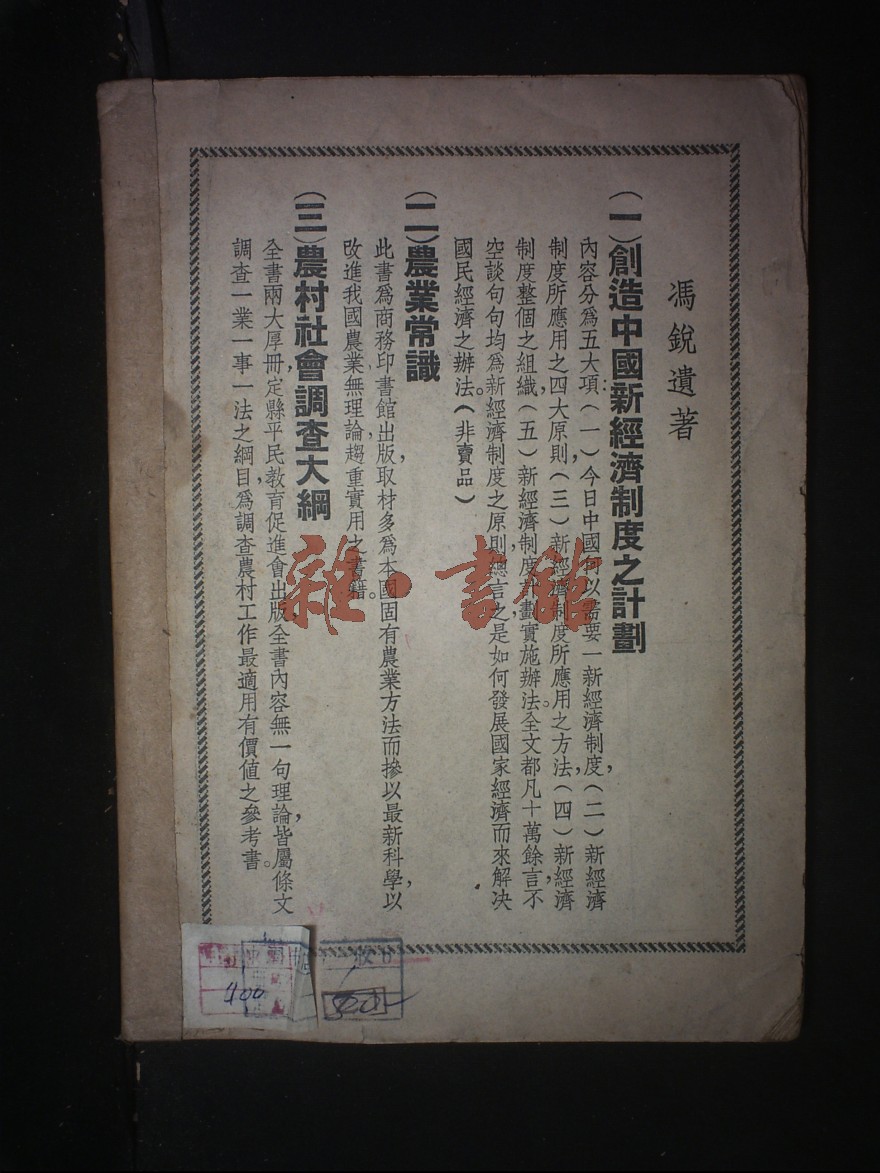 馮銳遺著
(一)創造中國新經濟制度之計劃
內容分爲五大項:(一)今日中國何以需要一新經濟制度,(二)新經濟
制度所應用之四大原則,(三)新經濟制度所應用之方法,(四)新經濟
制度整個之組織,(五)新經濟制度計劃實施辦法。全文都凡十萬餘言,不
空談句句均爲新經濟制度之原則,總言之是如何發展國家經濟而來解决
國民經濟之辦法。(非賣品)
(二)農業常識
此書爲商務印書館出版,取材多爲本國固有農業方法而摻以最新科學,以
改進我國農業,無理論趨重實用之書籍。
(三)農村社會調查大綱
全書兩大厚冊,定縣平民教育促進會出版,全書內容無一句理論,皆屬條文
調查一業一事一法之綱目,爲調查農村工作最適用有價值之參考書。
雜·書館
400